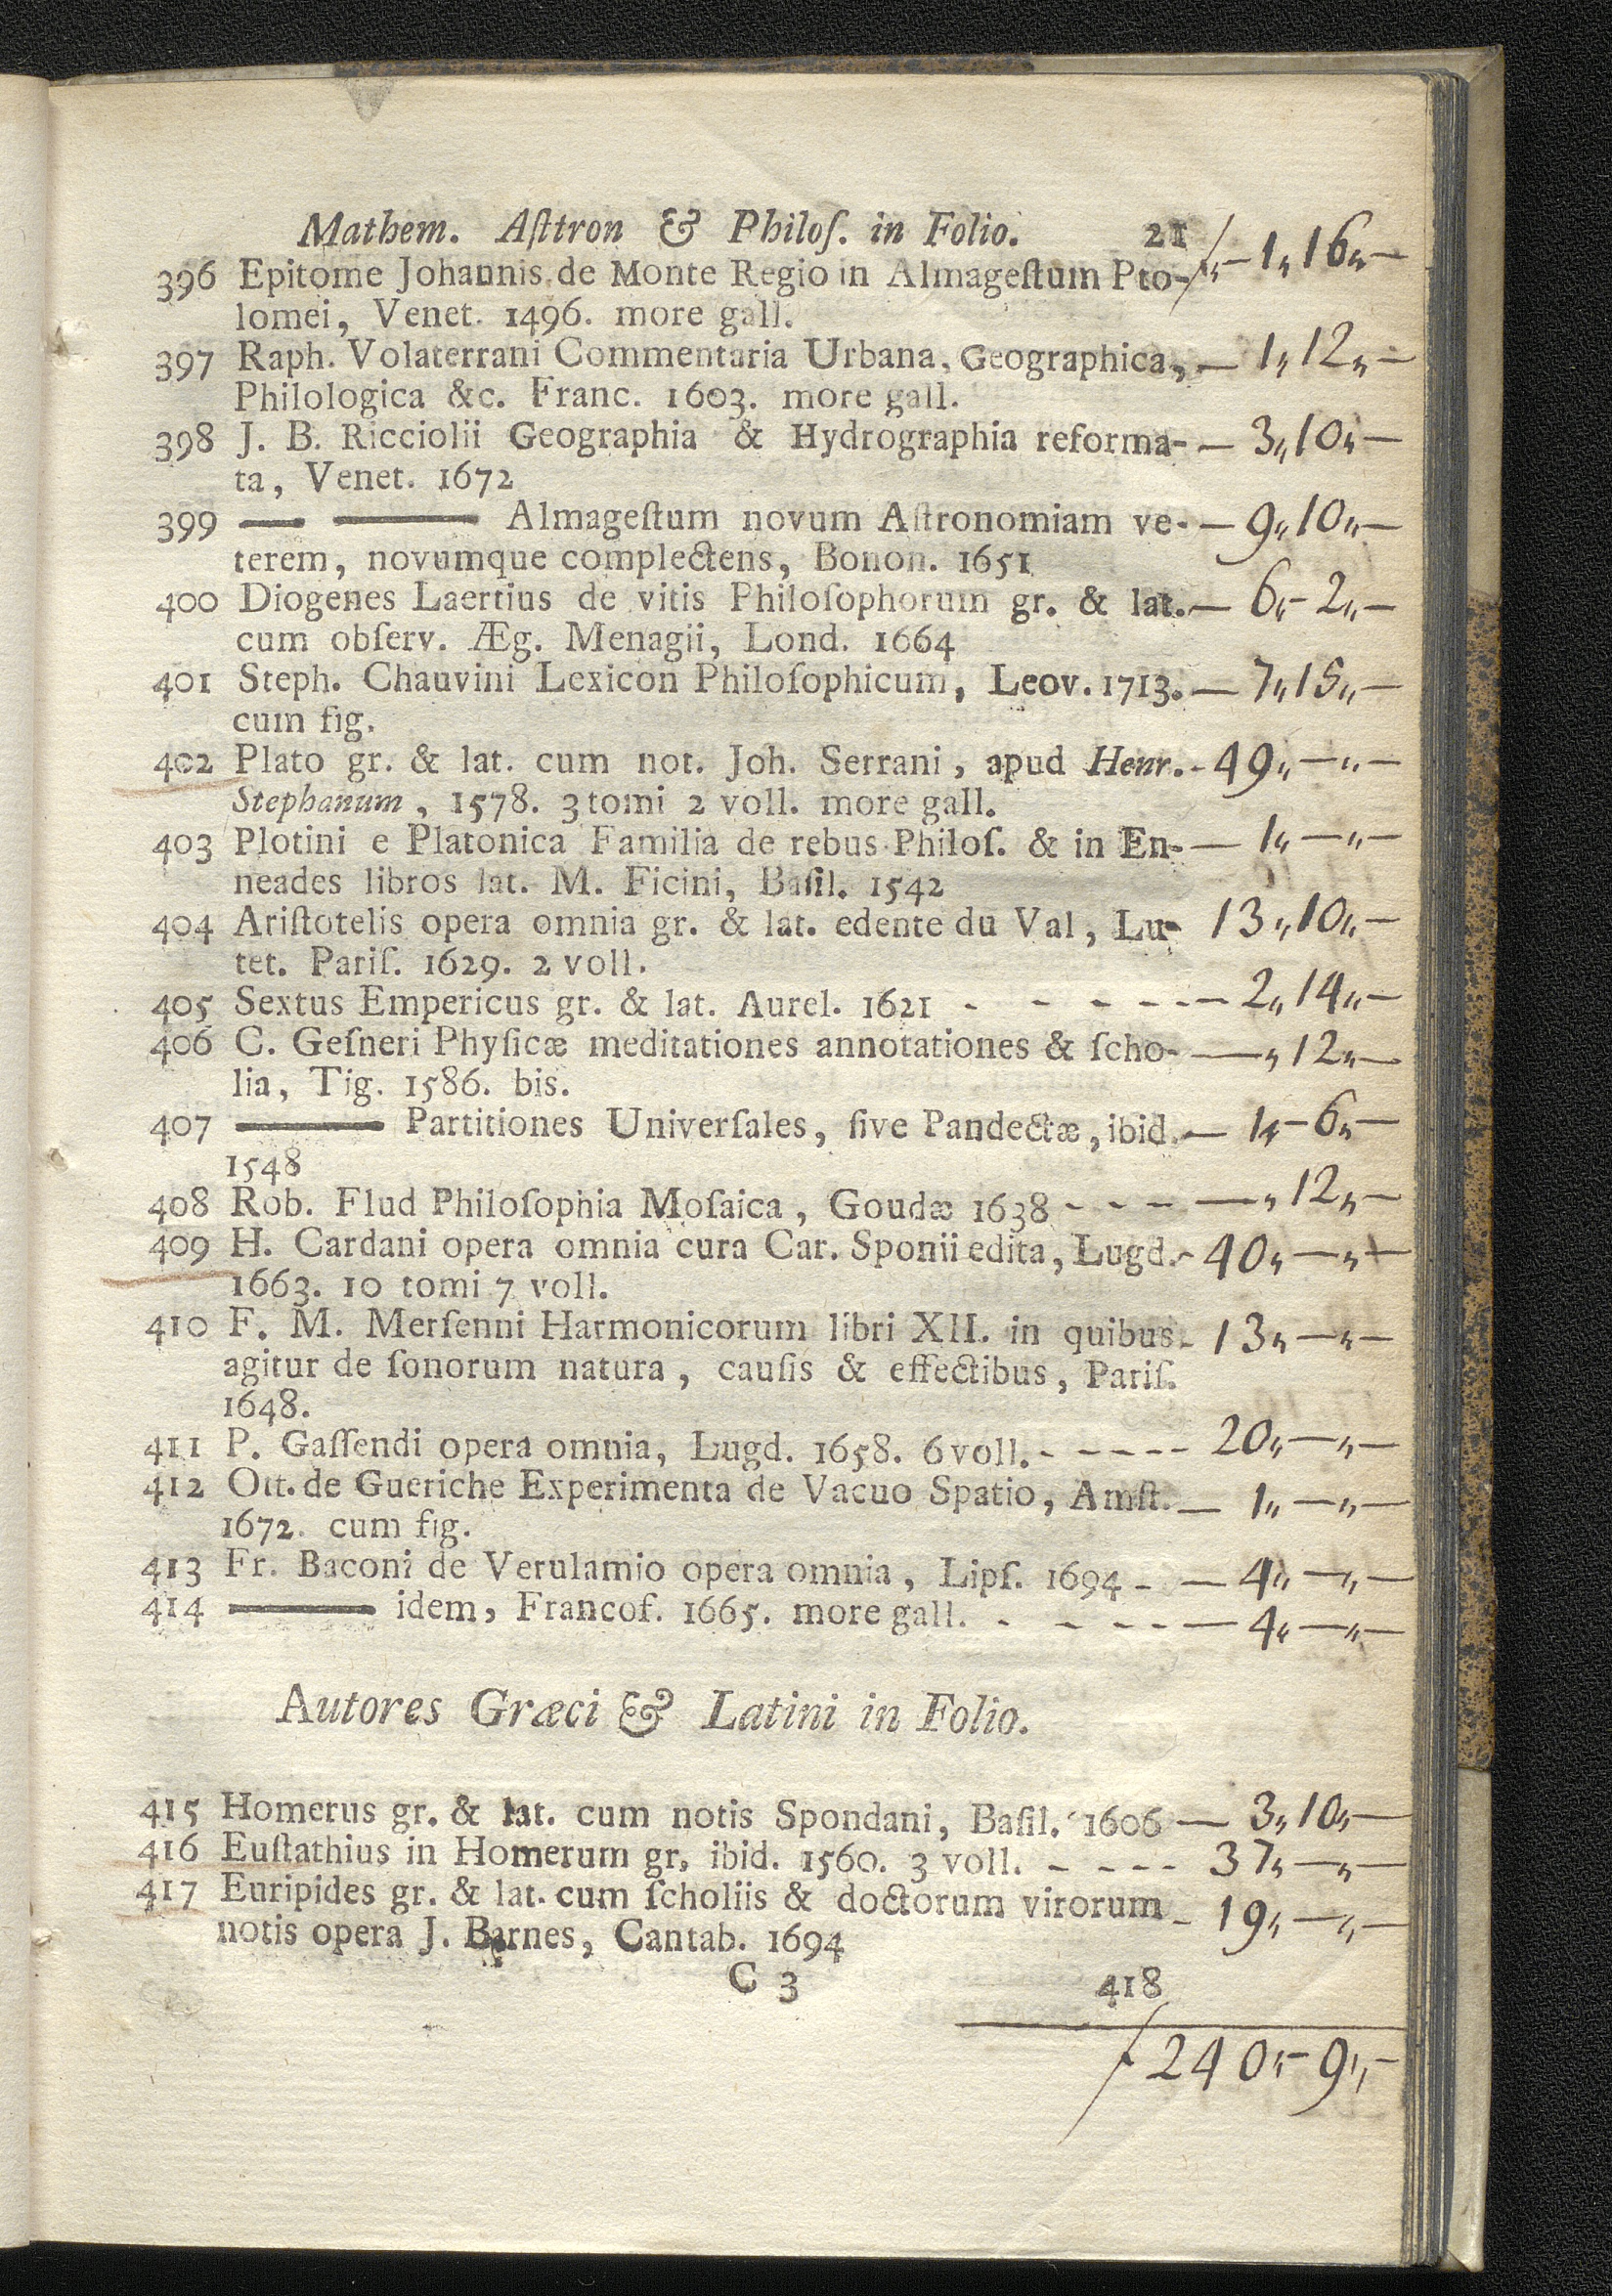 Mathem. Aſttron & Philoſ. in Folio. 21
396 Epitome Johannis de Monte Regio in Almageſtum Pto- ƒ „ – 1 „ 16 „ –
lomei, Venet. 1496. more gall.
397 Raph. Volaterrani Commentaria Urbana, Geographica, – 1 „ 12 „ –
Philologica &c. Franc. 1603. more gall.
398 J. B. Ricciolii Geographia & Hydrographia reforma- – 3 „ 10 „ –
ta, Venet. 1672
399 —— ——— Almageſtum novum Aſtronomiam ve- – 9 „ 10 „ –
terem, novumque complectens, Bonon. 1651
400 Diogenes Laertius de vitis Philoſophorum gr. & lat. – 6 „ – 2 „ –
cum obſerv. Æg. Menagii, Lond. 1664
401 Steph. Chauvini Lexicon Philoſophicum, Leov. 1713. – 7 „ 15 „ –
cum fig.
402 Plato gr. & lat. cum not. Joh. Serrani, apud Henr. - 49 „ – „ –
Stephanum, 1578. 3 tomi 2 voll. more gall.
403 Plotini e Platonica Familia de rebus Philoſ. & in En- – 1 „ – „ –
neades libros lat. M. Ficini, Baſil. 1542
404 Ariſtotelis opera omnia gr. & lat. edente du Val, Lu- 13 „ 10 „ –
tet. Pariſ. 1629. 2 voll.
405 Sextus Empericus gr. & lat. Aurel. 1621 - - - - - – 2 „ 14 „ –
406 C. Geſneri Phyſicæ meditationes annotationes & ſcho- — „ 12 „ –
lia, Tig. 1586. bis.
407 ——— Partitiones Univerſales, ſive Pandectæ, ibid. – 1 „ – 6 „ –
1548
408 Rob. Flud Philoſophia Moſaica, Goudæ 1638 - - - — „ 12 „ –
409 H. Cardani opera omnia cura Car. Sponii edita, Lugd. - 40 „ – „ –
1663. 10 tomi 7 voll.
410 F. M. Merſenni Harmonicorum libri XII. in quibus - 13 „ – „ –
agitur de ſonorum natura, cauſis & effectibus, Pariſ.
1648.
411 P. Gaſſendi opera omnia, Lugd. 1658. 6 voll. - - - - - 20 „ – „ –
412 Ott. de Gueriche Experimenta de Vacuo Spatio, Amſt. – 1 „ – „ –
1672. cum fig.
413 Fr. Baconi de Verulamio opera omnia, Lipſ. 1694 - – 4 „ – „ –
414 ——— idem, Francof. 1665. more gall. - - - - – 4 „ – „ –
Autores Græci & Latini in Folio.
415 Homerus gr. & lat. cum notis Spondani, Baſil. 1606 – 3 „ 10 „ –
416 Euſtathius in Homerum gr, ibid. 1560. 3 voll. - - - - 37 „ – „ –
417 Euripides gr. & lat. cum ſcholiis & doctorum virorum - 19 „ – „ –
notis opera J. Barnes, Cantab. 1694
C 3 418
ƒ 240 „ – 9 „ –